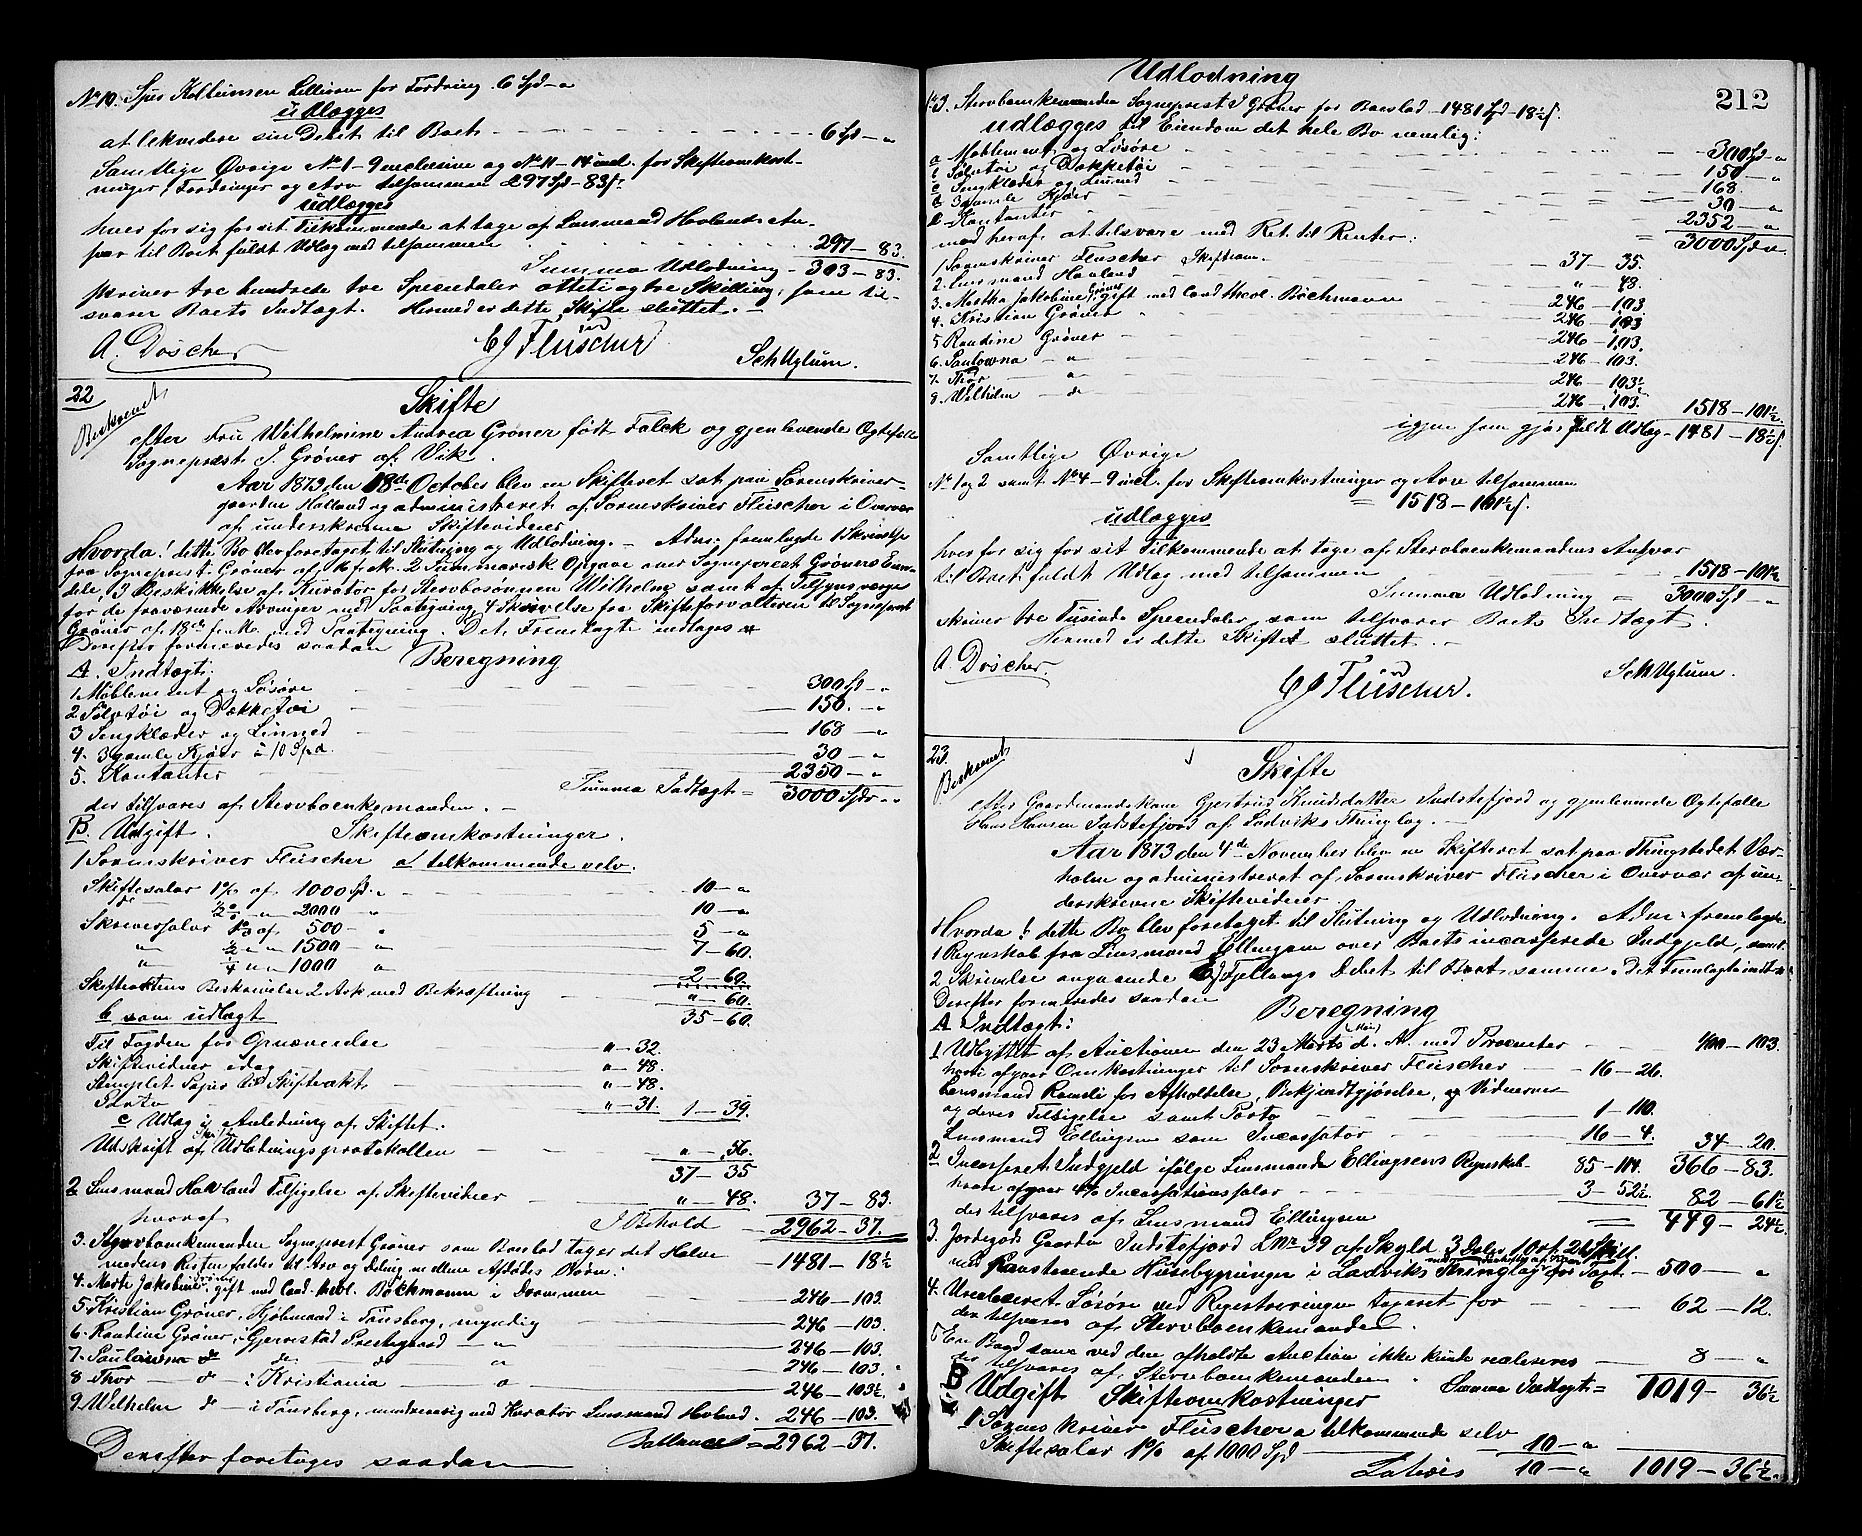 No 10. Sjur Kolbeinsen for Fordring 6 Spd - "
udlægges
at lekvidere sin Debet til Boet - 6 Spd - "
Samtlige Øvrige No 1 - 9 inclusive og No 11 - 14 incl. for Skifteomkost-
ninger, Fordringer og Arv tilsammen 297 Spd - 83 s.
udlægges
hver for sig for sit Tilkommende at tage af Lensmand Hovlands An-
svar til Boet fuldt Udlæg med tilsammen 297 - 83.
Summa Udlodning - 303 - 83.
skriver tre hundrede tre Speciedaler otteti og tre Skilling, som til-
svarer Boets Indtægt. Hermed er dette Skifte sluttet. -
A. Döscher CJ Flüscher Sch Uglum.
22
Beskrevet
Skifte
efter Fru Wilhelmine Andrea Grøner født Falck og gjenlevende Ægtefælle
Sogneprest I. Grøner af Vik.
Aar 1873 den 18de October blev en Skifteret sat paa Sorenskriver-
gaarden Holland og administreret af Sorenskriver Flüscher i Overvær
af underskrevne Skiftevidner
Hvorda! dette Bo blev foretaget til Slutning og Udlodning. - Adm: fremlagde 1 Skrivelse
fra Sogneprest Grøner af 2 Summarisk Opgave over Sogneprest Grøners Eien-
dele, 3 Beskikkelse af Kurator for Stervbosønnen Wilhelm samt af Tilsynsværge
for de fraværende Arvinger med Paategning, 4 Skrivelse fra Skifteforvalteren til Sogneprest
Grøner af 18de med Paategning. Det Fremlagte indtages
Derefter formeredes saadan Beregning
A. Indtægt:
1 Møblement og Løsøre 300 Spd - "
2 Sølvtøi og Dækketøi 150. - "
3 Sengklæder og Linned 168 - "
4. 3 gamle Kjøer à 10 Spd. 30 - "
5. Kontanter 2350 - "
Summa Indtægt = 3000 Spdr - "
der tilsvares af Stervboenkemanden. -
B. Udgift. Skifteomkostninger.
1 Sorenskriver Flüscher a tilkommende selv.
Skiftesalær 1% af 1000 Spd. " 10 - "
do ½ % " 2000 - " 10 - "
Skriversalær 1% af 500 - " 5 - "
" ½ " " 1500 - " 7 - 60.
" ¼ " " 1000 " 2 - 60.
Skifteaktens Beskrivelse 2 Ark med Bekræftning " - 60.
b som udlagt 35 - 60.
Til Fogden for " - 32.
Skiftevidner idag " - 48.
Stemplet Papir til Skifteakt " - 48.
Porto " - 31. 1 - 39.
c Udlæg i Anledning af Skiftet.
Udskrift af Skifte Udlodningsprotokollen " - 56.
37 - 35
2 Lensmand Hovland Tilsigelse af Skiftevidner " - 48. 37 - 83.
hvoraf I Behold 2962 - 37.
3. Stervboenkemanden Sogneprest Grøner som Boeslod tager det Halve 1481 - 18½
medens Resten falder til Arv og deling mellem Afdødes Børn:
4. Marthe Jakobine Grøner gift med Cand. theol. Bøchmann i Drammen 246 - 103.
5. Kristian Grøner, i Tønsberg, myndig 246 - 103.
6. Randine Grøner, i Gjerrestad Prestegaard - " 246 - 103
7. Paulowna do do " 246 - 103.
8 Thor - do - i Kristiania - " 246 - 103½.
9. Wilhelm do - i Tønsberg, mindreaarig ved Kurator Lensmand Hovland. 246 - 103.
Ballance = 2962 - 37.
Derefter foretoges saadan
Udlodning
212
No 3. Stervboenkemanden Sogneprest I Grøner for Boeslod - 1481 Spd - 18½ s.
udlægges til Eiendom det hele Bo nemlig:
a Møblement og Løsøre 300 Spd - "
b Sølvtøi og Dækketøi 150 - "
c Sengklæder og Linned 168.
d 3 gamle Kjøer 30 - "
e Kontanter 2352 - "
mod heraf at tilsvare med Ret til Renter: 3000 Spd "
1 Sorenskriver Flüscher Skifteom. 37 - 35.
2. Lensmand Hovland " - 48.
3. Martha Jakobine Grøner gift med Cand theol. Bøchmann 246 - 103
4. Kristian Grøner 246 - 103
5 Randine Grøner 246 - 103.
6. Paulowna " 246 - 103.
7. Thor " 246 - 103½
8. Wilhelm do 246 - 103. 1518 - 101½
igjen som gjør fuldt Udlæg - 1481 - 18½ s.
Samtlige Øvrige
No 1 og 2 samt No 4 - 9 incl. for Skifteomkostninger og Arv tilsammen
= 1518 - 101½ s.
udlægges
hver for sig for sit Tilkommende at tage af Stervboenkemandens Ansvar
til Boet fuldt Udlæg med tilsammen 1518 - 101½
Summa Udlodning = 3000 Spd - "
skriver tre Tusinde Speciedaler som tilsvarer Boets Indtægt.
Hermed er dette Skifte sluttet. -
A. Döscher. CJ Flüscher. Sch Uglum.
23.
Beskrevet
Skifte
efter Gaardmandskone Gjertrud Knudsdatter Indstefjord og gjenlevende Ægtefælle
Hans Hansen Indstefjord af Ladviks Thinglag. -
Aar 1873 den 4de November blev en Skifteret sat paa Thingstedet Vær-
holm og administreret af Sorenskriver Flüscher i Overvær af un-
derskrevne Skiftevidner.
Hvorda! dette Bo blev foretaget til Slutning og Udlodning. Adm: fremlagde
1 Regnskab fra Lensmand Ellingsen over Boets incasserede Indgjeld, samt
2 Skrivelse angaaende Fjellangs Debet til Boet samme. Det Fremlagte indtages
Derefter formeredes saadan Beregning
A Indtægt:
1 Udbyttet af Auctionen den 23 Marts d. A. med Procenter 400 - 103.
hvori afgaar Omkostninger til Sorenskriver Flüscher 16 - 26.
Lensmand Ramsli for Afholdelse, Bekjendtgjørelse, og Vidnerne
og deres Tilsigelse samt Porto 1 - 110.
Lensmand Ellingsen som Incassator 16 - 4. 34 - 20.
2 Incasseret Indgjeld ifølge Lensmands Ellingsens Regnskab 85 - 114. 366 - 83.
hvori afgaar 4% Incassationssalær 3 - 52½. 82 - 61½
der tilsvares af Lensmand Ellingsen = 449 - 24½
3. Jordegods Gaarden Indstefjord L No 39 af Skyld 3 Daler 1 Ort 21 Skill.
med Paastaaende Husebygninger i Ladviks Thinglag for Taxt - 500 - "
4. Urealiseret Løsøre ved Registreringen taxeret for 62 - 12.
der tilsvares af Stervboenkemanden.
5 En Baad som ved den afholdte Auction ikke kunde realiseres 8 - "
der tilsvares af Stervboenkemanden. Summa Indtægt = 1019 - 36½
B Udgift Skifteomkostninger
1 Sorenskriver Flüscher a tilkommende selv
Skiftesalær 1% af 1000 Spd 10 - "
Latus 10 - " 1019 - 36½